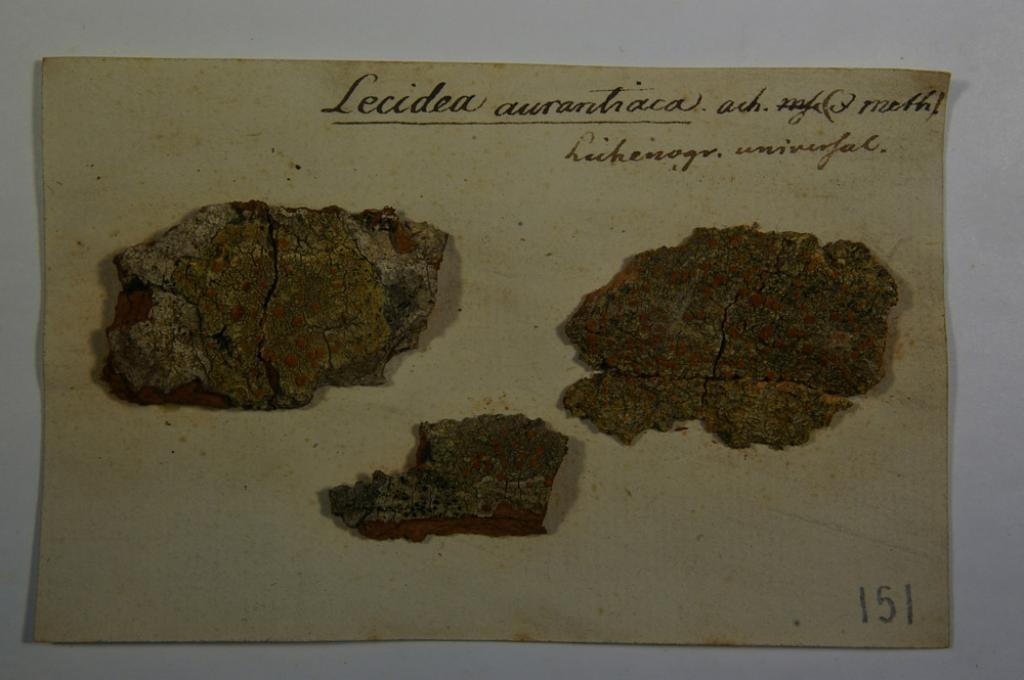 Lecidea aurantiaca. ach. meth!
Lichenogr. universal.
151